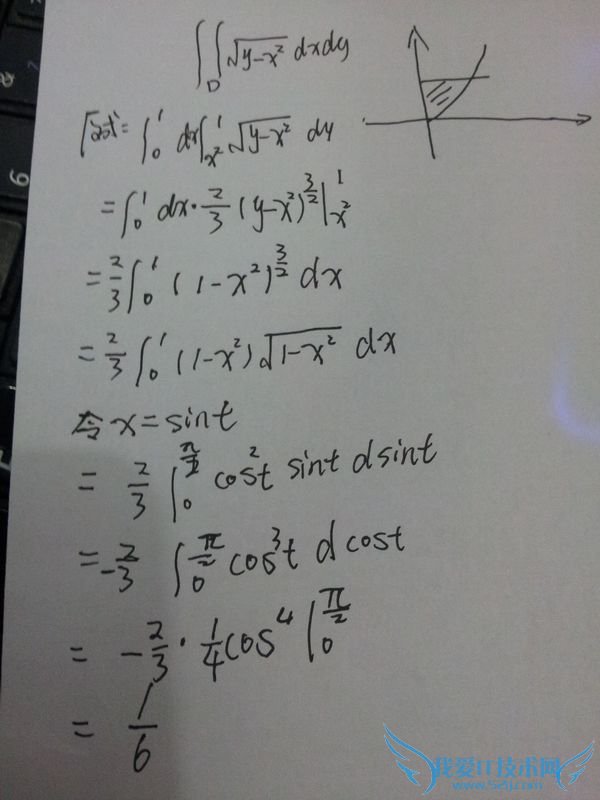 ∫∫_D √(y-x²) dxdy
原式= ∫₀¹ dx∫_{x²}^1 √(y-x²) dy
= ∫₀¹ dx · 2/3 (y-x²)^{3/2} |_{x²}^1
= 2/3 ∫₀¹ (1-x²)^{3/2} dx
= 2/3 ∫₀¹ (1-x²) √(1-x²) dx
令 x = sint
= 2/3 ∫₀^{π/2} cos²t sint dsint
= -2/3 ∫₀^{π/2} cos³t d cost
= -2/3 · 1/4 cos⁴ |₀^{π/2}
= 1/6
我爱IT技术网
www.52ij.com